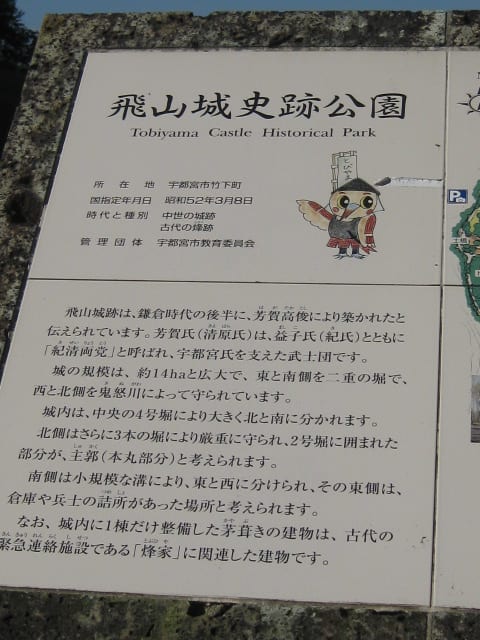 飛山城史跡公園
Tobiyama Castle Historical Park
とびやま
所在地 宇都宮市竹下町
国指定年月日 昭和52年3月8日
時代と種別 中世の城跡
古代の烽跡
管理団体 宇都宮市教育委員会
飛山城跡は、鎌倉時代の後半に、芳賀高俊により築かれたと
伝えられています。芳賀氏(清原氏)は、益子氏(紀氏)とともに
「紀清両党」と呼ばれ、宇都宮氏を支えた武士団です。
城の規模は、約14haと広大で、東と南側を二重の堀で、
西と北側を鬼怒川によって守られています。
城内は、中央の4号堀により大きく北と南に分かれます。
北側はさらに3本の堀により厳重に守られ、2号堀に囲まれた
部分が、主郭(本丸部分)と考えられます。
南側は小規模な溝により、東と西に分けられ、その東側は、
倉庫や兵士の詰所があった場所と考えられます。
なお、城内に1棟だけ整備した茅葺きの建物は、古代の
緊急連絡施設である「烽家」に関連した建物です。
P
土橋